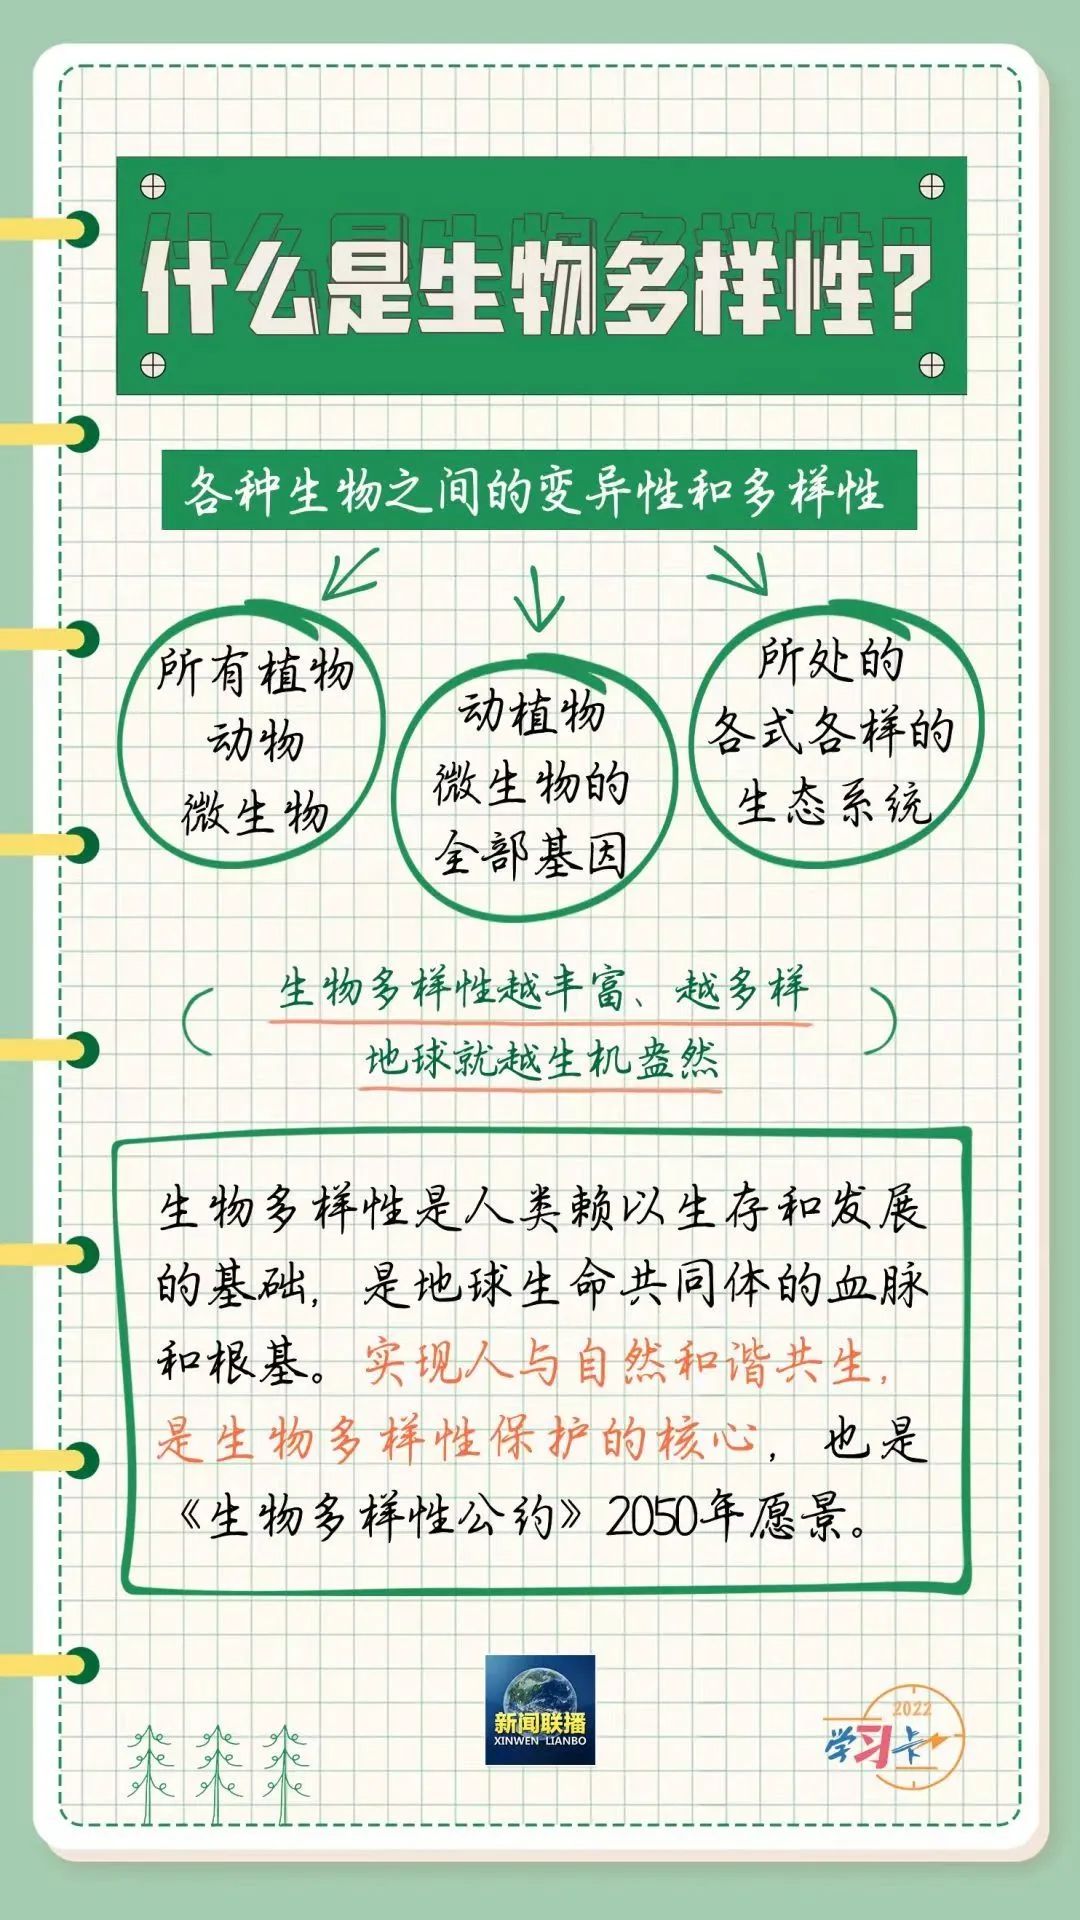 什么是生物多样性?
各种生物之间的变异性和多样性
所有植物
动物
微生物
动植物
微生物的
全部基因
所处的
各式各样的
生态系统
生物多样性越丰富、越多样
地球就越生机盎然
生物多样性是人类赖以生存和发展
的基础,是地球生命共同体的血脉
和根基。实现人与自然和谐共生,
是生物多样性保护的核心,也是
《生物多样性公约》2050年愿景。
新闻联播
XINWEN LIANBO
2022
学习卡